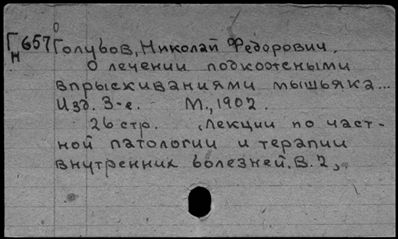 Г657
Н
Голубов, Николай Федорович.
О лечении подкожными
впрыскиваниями мышьяка...
Изд. 3-е. М., 1902.
26 стр. , Лекции по част-
ной патологии и терапии
внутренних болезней. В. 2,